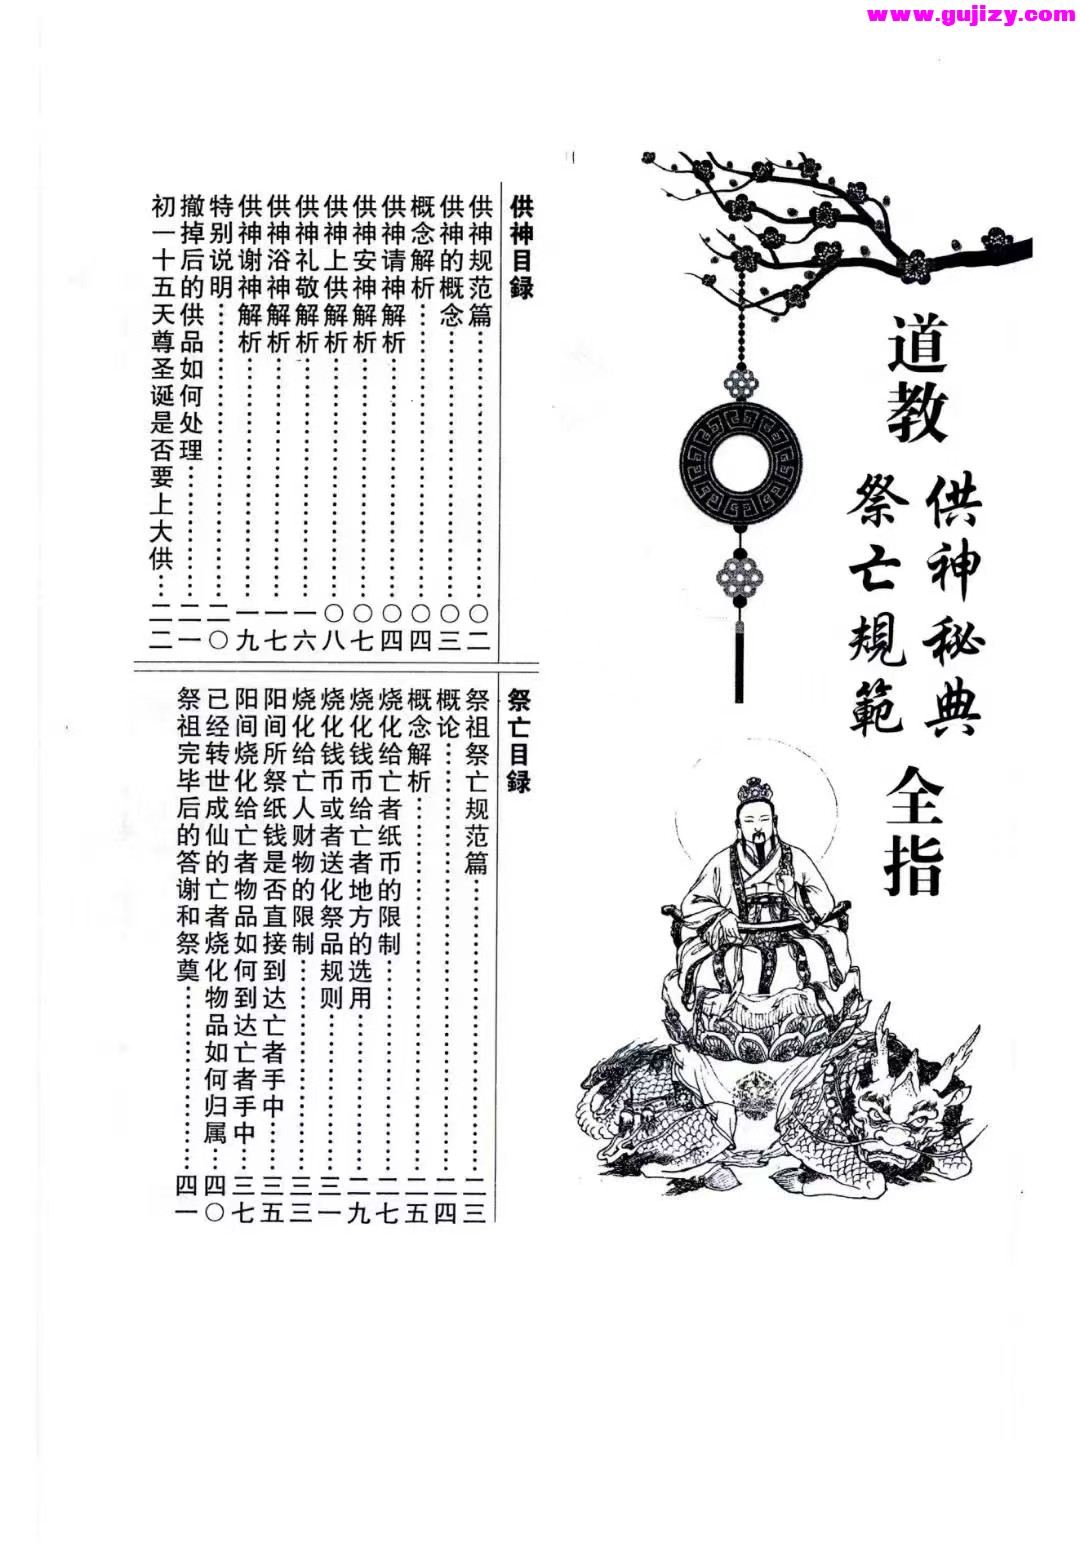 www.gujizy.com
道教
供神秘典
祭亡規範
全指
供神目録
供神规范篇……〇二
供神的概念……〇三
概念解析……〇四
供神请神解析……〇四
供神安神解析……〇七
供神上供解析……〇八
供神礼敬解析……一六
供神浴神解析……一七
供神谢神解析……一九
特别说明……二〇
撤掉后的供品如何处理……二一
初一十五天尊圣诞是否要上大供……二二
祭亡目録
祭祖祭亡规范篇……二三
概论……二四
概念解析……二五
烧化给亡者纸币的限制……二七
烧化钱币给亡者地方的选用……二九
烧化钱币或者送化祭品规则……三一
烧化给亡人财物的限制……三三
阳间所祭纸钱是否直接到达亡者手中……三五
阳间烧化给亡者物品如何到达亡者手中……三七
已经转世成仙的亡者烧化物品如何归属……四〇
祭祖完毕后的答谢和祭奠……四一